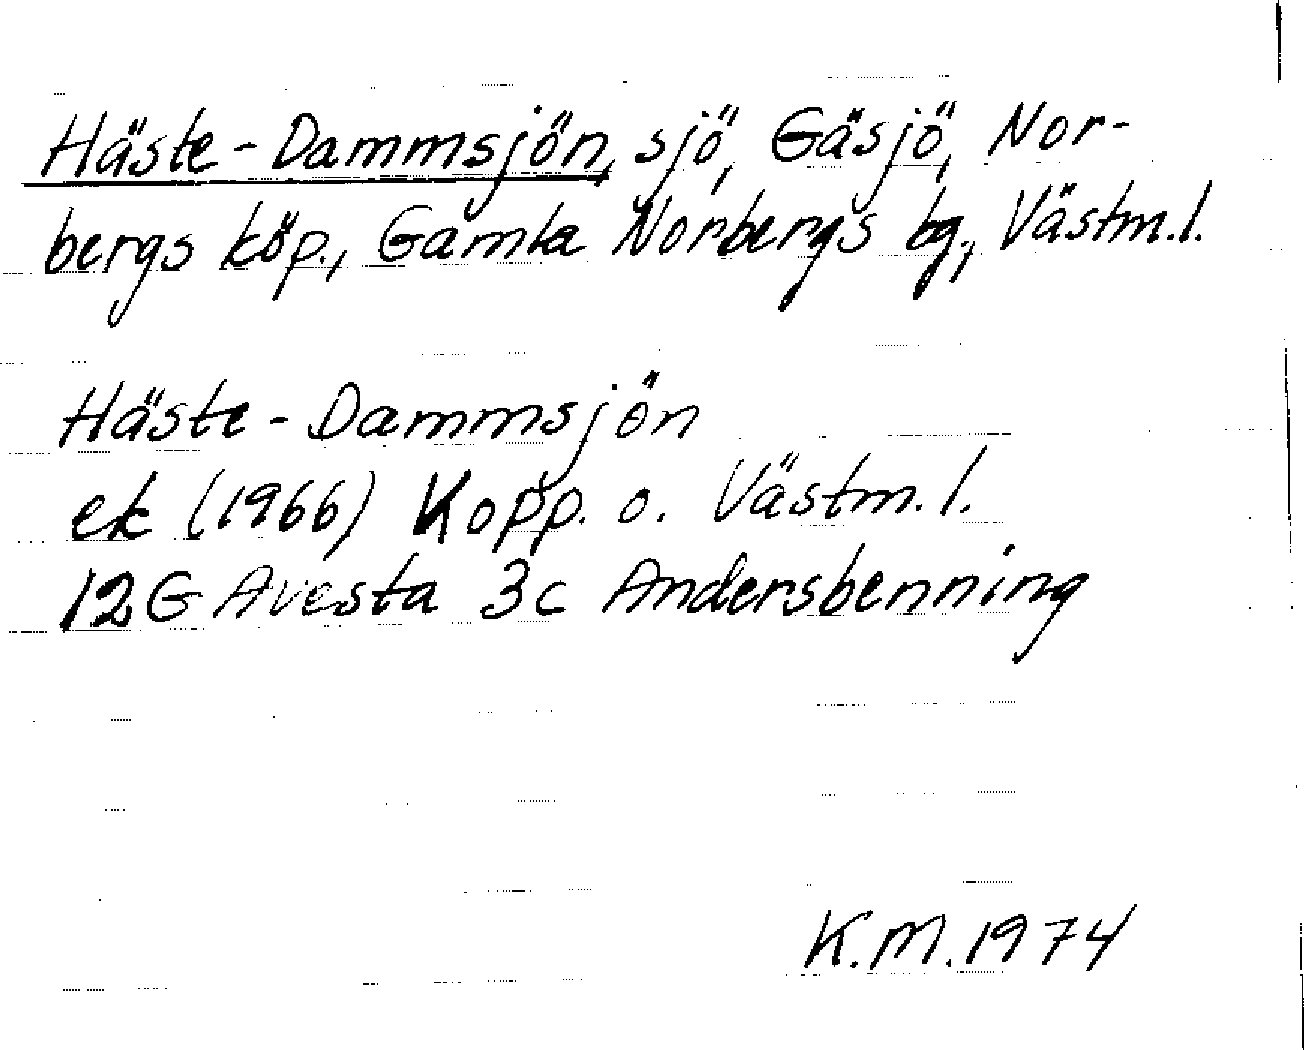 Häste-Dammsjön, sjö, Gäsjö, Nor-
bergs köp., Gamla Norbergs bg., Västm.l.
Häste-Dammsjön
ek (1966) Kopp. o. Västm.l.
12G Avesta 3c Andersbenning
K.M.1974